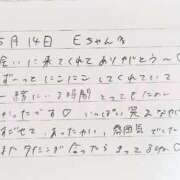 5月14日 Eちゃんる
会いに来てくれてありがとう〜♡
ずーっとにこにこしてくれていて
一緒にいる時間とってもたのし
かったです♡ いっぱい笑
すごせて、あったかい、雰囲気でした
またタイミング合ったら